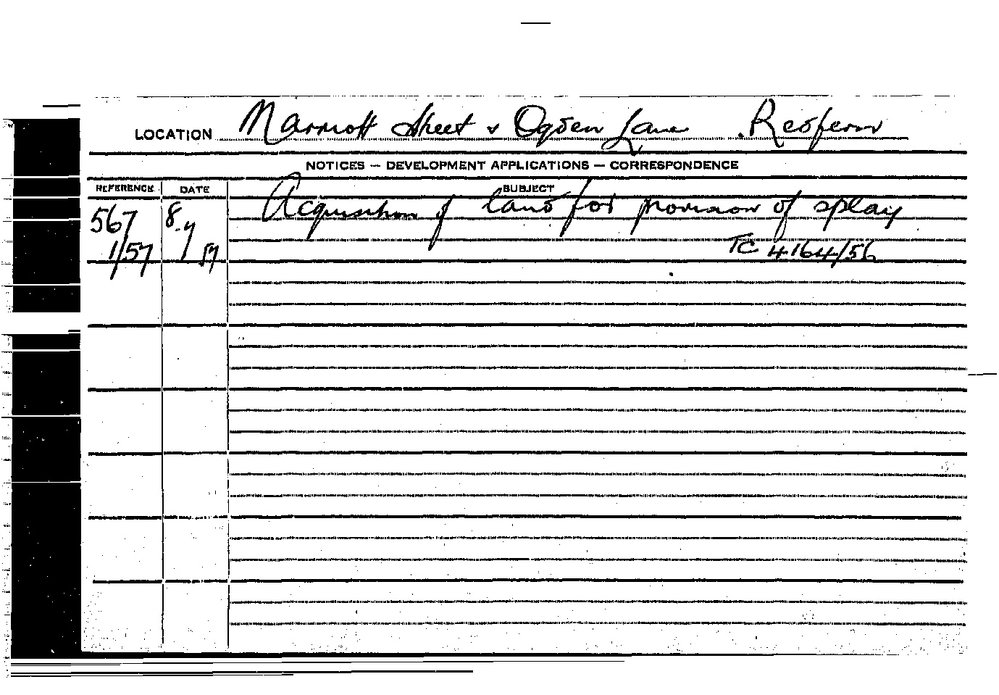 LOCATION Marriott Street & Ogden Lane Redfern
NOTICES — DEVELOPMENT APPLICATIONS — CORRESPONDENCE
REFERENCE DATE SUBJECT
567 8.7 Acquisition of land for provision of splay
1/57 57 TC 4164/56